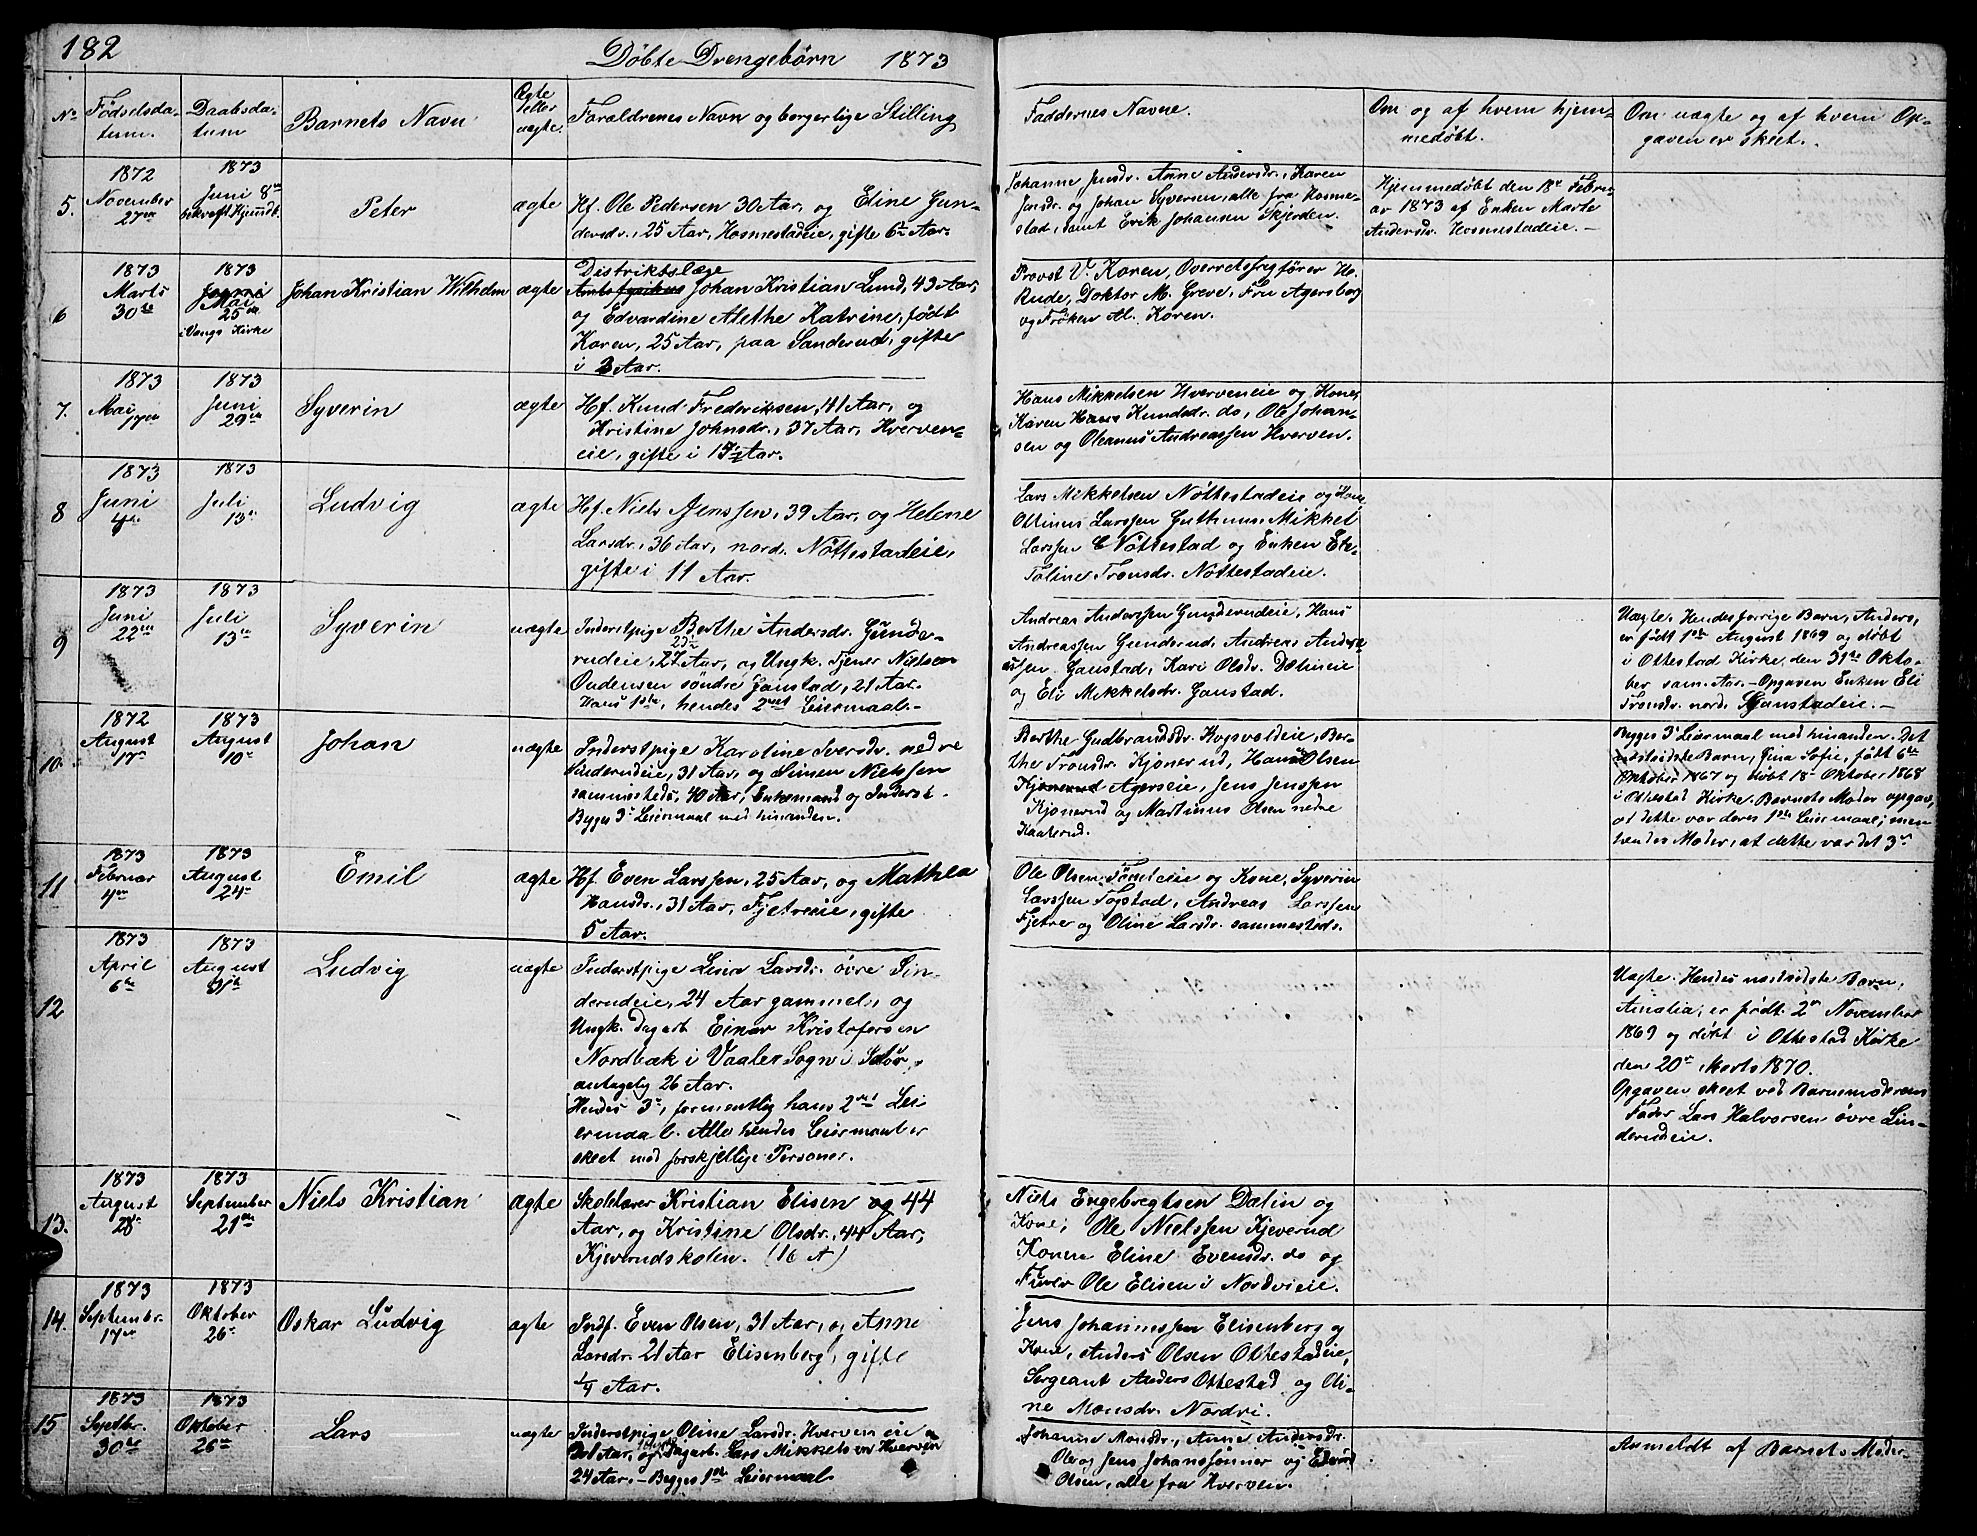 182
Döbte Drengebörn 1873
No
Fødselsda-
tum.
Daabsda-
tum
Barnets Navn
Ægte
eller
uægte
Forældrenes Navn og borgerlige Stilling
Faddernes Navne.
Om og af hvem hjem-
medøbt.
Om uægte og af hvem Op-
gaven er skeet.
5.
1872
November
27de
1873
Juni 8de
Peter
ægte
Hf. Ole Pedersen 30 Aar, og Eline Gun-
dersdr., 25 Aar, Hosmestadeie, gifte 6 Aar.
Johanne Jensdr. Anne Andersdr., Karen
Jensdr. og Johan Syversen, alle fra Hosme-
stad, samt Erik Johansen Skjerden.
Hjemmedøbt den 18de Febru-
ar 1873 af Enken Marte
Andersdr. Hosmestadeie. —
6
1873
Marts
30te
1873
Mai
25de
i Vangs Kirke
Johan Kristian Wilhelm
ægte
Distriktslæge
Amtsfysikus Johan Kristian Lund, 43 Aar,
og Edvardine Alethe Katrine, født
Koren, 25 Aar, paa Sanderud, gifte
i 3 Aar.
Provst V. Koren, Overretssagfører H.
Rude, Doktor M. Greve, Fru Agersborg
og Frøken Al. Koren.
7.
1873
Mai
17de
1873
Juni
29de
Syverin
ægte
Hf. Knud Frederiksen, 41 Aar, og
Kristine Johnsdr., 37 Aar, Hverven-
eie, gifte i 15½ Aar.
Hans Mikkelsen Hverveneie og Kone,
Karen Hans Knudsdr. do, Ole Johan-
sen og Oleanus Andreassen Hverven.
8
1873
Juni
4de
1873
Juli
13de
Ludvig
ægte
Hf. Niels Jenssen, 39 Aar, og Helene
Larsdr., 36 Aar, nord. Nøttestadeie,
gifte i 11 Aar.
Lars Mikkelsen Nøttestadeie og Kone
Ottinus Larssen Guthuus, Mikkel
Larssen Nøttestad og Enken
Toline Tronsdr. Nøttestadeie.
9
1873
Juni
22de
1873
Juli
13de
Syverin
uægte
Inderstpige Berthe Andersdr. Gunde-
rudeie, 27 Aar, og Ungk. Tjener Nielsen
Oudensen søndre Gaustad, 21 Aar.
Hans 1ste, hendes 2net Leiermaal.
Andreas Anderssen Gunderudeie, Hans
Andreassen Gunderud, Andreas Anders-
sen Gaustad, Kari Olsdr. Dælineie
og Eli Mikkelsdr. Gaustad.
Uægte. Hendes forrige Barn, Anders,
er født 1ste August 1869 og døbt
i Ottestad Kirke den 31te Okto-
ber sam. Aar. — Opgaven Enken Eli
Tronsdr. nord. Gaustadeie. —
10
1872
August
17de
1873
August
10de
Johan
uægte
Inderstpige Karoline Iversdr. nedre
Sinderudeie, 31 Aar, og Simen Nielssen
sammesteds, 40 Aar, Enkemand og Inderst.
Begges 3die Leiermaal med hinanden.
Berthe Gudbrandsdr. Kopvoldeie, Ber-
the Tronsdr. Kjonerud, Hans Olsen
Kjonerud Agerseie, Jens Jenssen
Kjonerud og Martinus Olsen nedre
Kaaterud.
Begges 3die Leiermaal med hinanden. Det
næstsidste Barn, Gina Sofie, født 6te
Oktober 1867 og døbt 18de Oktober 1868
i Ottestad Kirke. Barnets Moder opgav,
at dette var deres 1ste Leiermaal; men
hendes Moder, at dette var det 3die
11
1873
Februar
4de
1873
August
24de
Emil
ægte
Hf. Even Larssen, 25 Aar, og Mathea
Hansdr., 31 Aar, Fjetreeie, gifte
5 Aar.
Ole Olsen Tomteeie og Kone, Syverin
Larssen Togstad, Andreas Larssen
Fjetre og Oline Larsdr. sammesteds.
12
1873
April
6te
1873
August
31te
Ludvig
uægte
Inderstpige Larsdr. øvre Sin-
derudeie, 24 Aar gammel, og
Ungk. Dagarb. Einar Kristofersen
Nordbæk i Vaaler Sogn i Solør,
antagelig 26 Aar.
Hendes 3die, formentlig hans 2net Lei-
ermaal. Alle hendes Leiermaal er
skeet med forskjellige Personer.
Uægte. Hendes næstsidste Barn,
Amalia, er født 2den November
1869 og døbt i Ottestad Kirke
den 20de Marts 1870.
Opgaven skeet ved Barnemoderens
Fader Lars Halvorsen øvre Sin-
derudeie.
13.
1873
August
28de
1873
September
21de
Niels Kristian
ægte
Skolelærer Kristian Elisen og 44
Aar, og Kristine Olsdr., 44 Aar,
Kjeverudskolen. (16 A)
Niels Engebregtsen Dælin og
Kone, Ole Nielssen Kjeverud
Konen Eline Evensdr. do og
Ole Elisen i Nordvieie.
14.
1873
Septembr.
17de
1873
Oktober
26de
Oskar Ludvig
ægte
Indf. Even Olsen, 31 Aar, og Anne
Larsdr. 21 Aar Elisenberg, gifte
¼ Aar.
Jens Johannessen Elisenberg og
Kone, Anders Olsen Ottestadeie,
Sergeant Anders Ottestad og Oli-
ne Monsdr. Nordvi.
15
1873
Septbr.
30te
1873
Oktober
26de
Lars
uægte
Inderstpige Oline Larsdr. Hverveneie
Aar, og Ungk. Dagarb. Lars Mikkelsen Hverven
24 Aar. — Begges 1ste Leiermaal
Johanne Monsdr., Anne Andersdr.
Ole og Jens Johanssønner og Edvard
Olsen, alle fra Hverven.
Anmeldt af Barnets Moder.